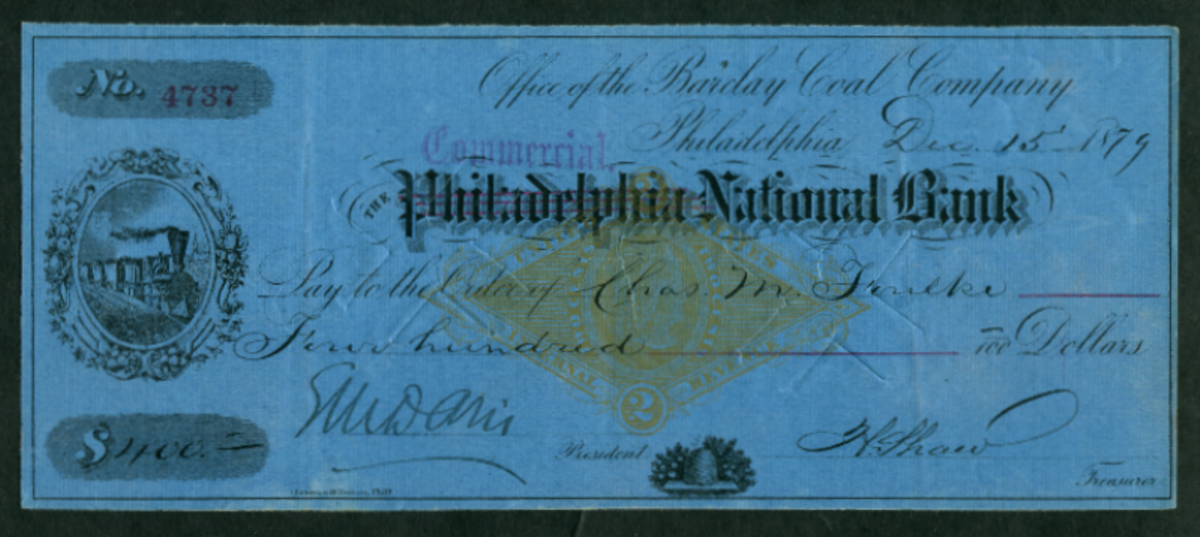 No. 4737
Office of the Barclay Coal Company
Philadelphia Dec. 15 1879
Commercial
THE Philadelphia National Bank
Pay to the Order of Chas M. Foulke
Four hundred 100 Dollars
$400.=
President
H. Shaw
Treasurer
2